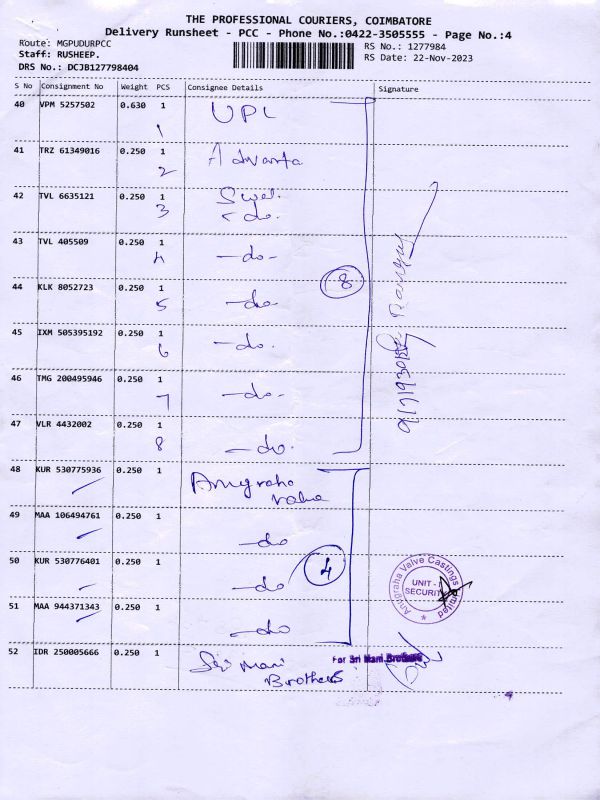 THE PROFESSIONAL COURIERS, COIMBATORE
Delivery Runsheet - PCC - Phone No.:0422-3505555 - Page No.:4
Route: MGPUDURPCC
Staff: RUSHEEP.
DRS No.: DCJB127798404
RS No.: 1277984
RS Date: 22-Nov-2023
S No Consignment No Weight PCS Consignee Details Signature
40 VPM 5257502 0.630 1 UPL
1
41 TRZ 61349016 0.250 1 Advanta
2
42 TVL 6635121 0.250 1
3 do.
43 TVL 405509 0.250 1
4 -do-
44 KLK 8052723 0.250 1
5 -do-
8
45 IXM 505395192 0.250 1
6 -do.
46 TMG 200495946 0.250 1
7 -do-
47 VLR 4432002 0.250 1
8 -do.
48 KUR 530775936 0.250 1 Anugraha
valve
49 MAA 106494761 0.250 1
-do
50 KUR 530776401 0.250 1
-do
4
51 MAA 944371343 0.250 1
-do
Anugraha Valve Castings Limited
UNIT - I
SECURITY
52 IDR 250005666 0.250 1 Sri Mani
Brothers
For Sri Mani Brothers